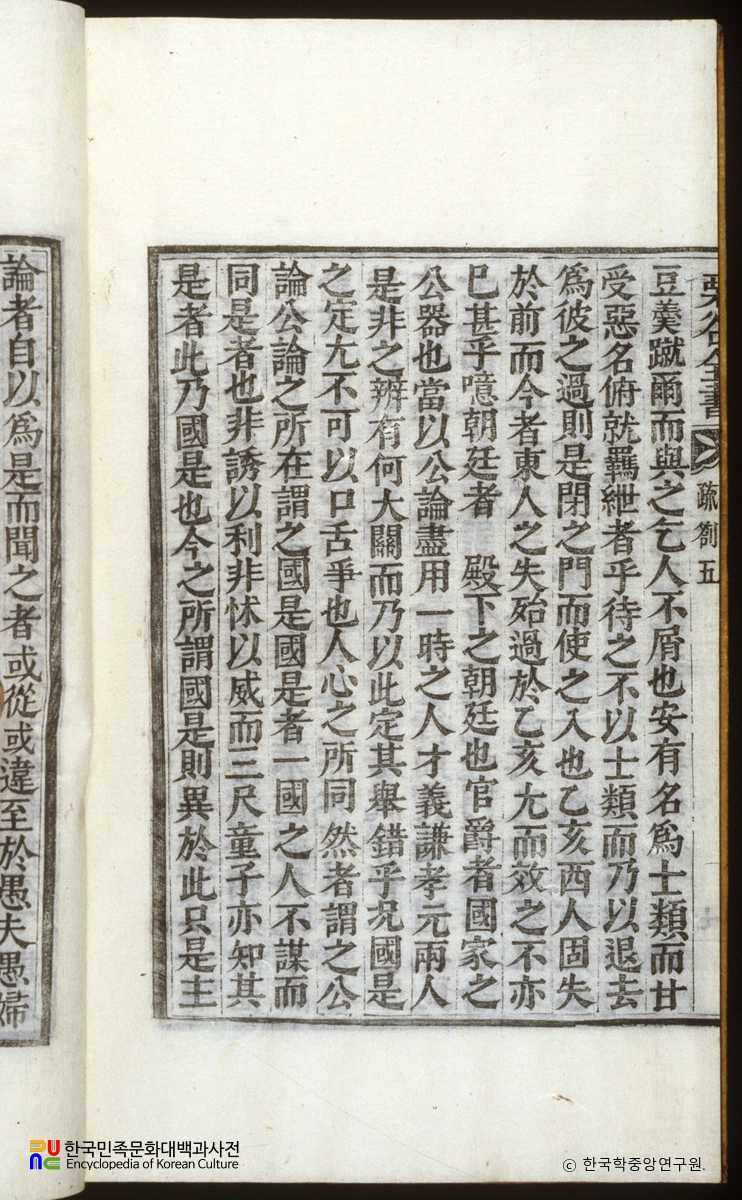 栗谷全書 疏劄五
豆羹蹴爾而與之乞人不屑也安有名爲士類而甘
受惡名俯就羈絏者乎待之不以士類而乃以退去
爲彼之過則是閉之門而使之入也乙亥西人固失
於前而今者東人之失殆過於乙亥尤而效之不亦
已甚乎噫朝廷者 殿下之朝廷也官爵者國家之
公器也當以公論盡用一時之人才義謙孝元兩人
是非之辨有何大關而乃以此定其舉錯乎况國是
之定尤不可以口舌爭也人心之所同然者謂之公
論公論之所在謂之國是國是者一國之人不謀而
同是者也非誘以利非怵以威而三尺童子亦知其
是者此乃國是也今之所謂國是則異於此只是主
論者自以爲是而聞之者或從或違至於愚夫愚婦
한국민족문화대백과사전
Encyclopedia of Korean Culture
ⓒ 한국학중앙연구원.